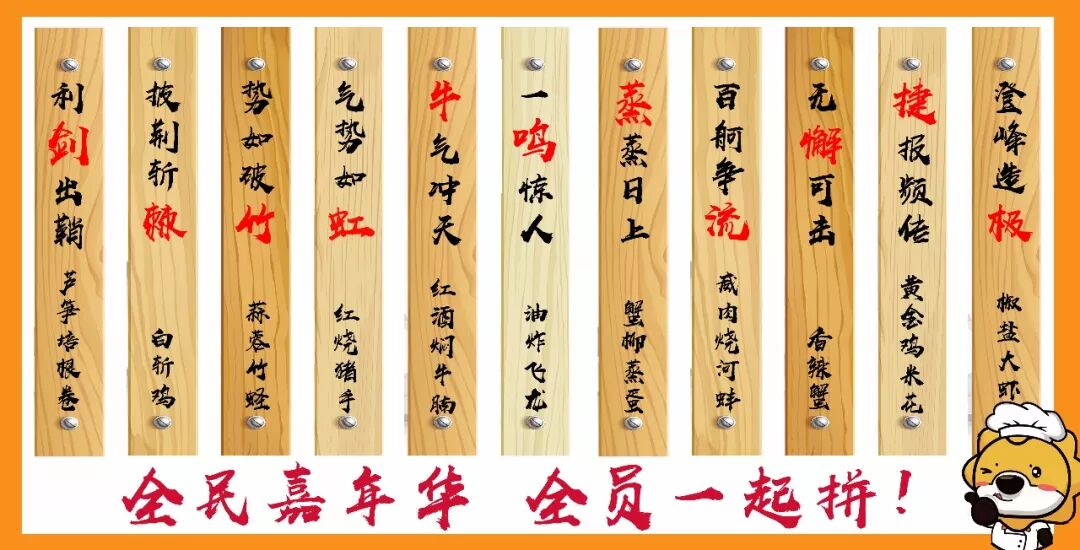 利剑出鞘
芦笋培根卷
披荆斩棘
白斩鸡
势如破竹
蒜蓉竹蛏
气势如虹
红烧猪手
牛气冲天
红酒焖牛腩
一鸣惊人
油炸飞龙
蒸蒸日上
蟹柳蒸蛋
百舸争流
咸肉烧河蚌
无懈可击
香辣蟹
捷报频传
黄金鸡米花
登峰造极
椒盐大虾
全民嘉年华 全员一起拼！